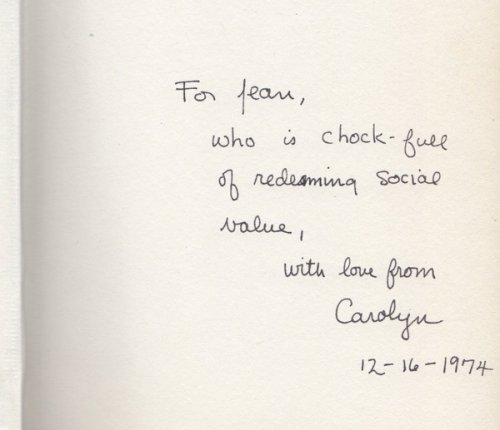 For Jean,
who is chock-full
of redeeming social
value,
with love from
Carolyn
12-16-1974